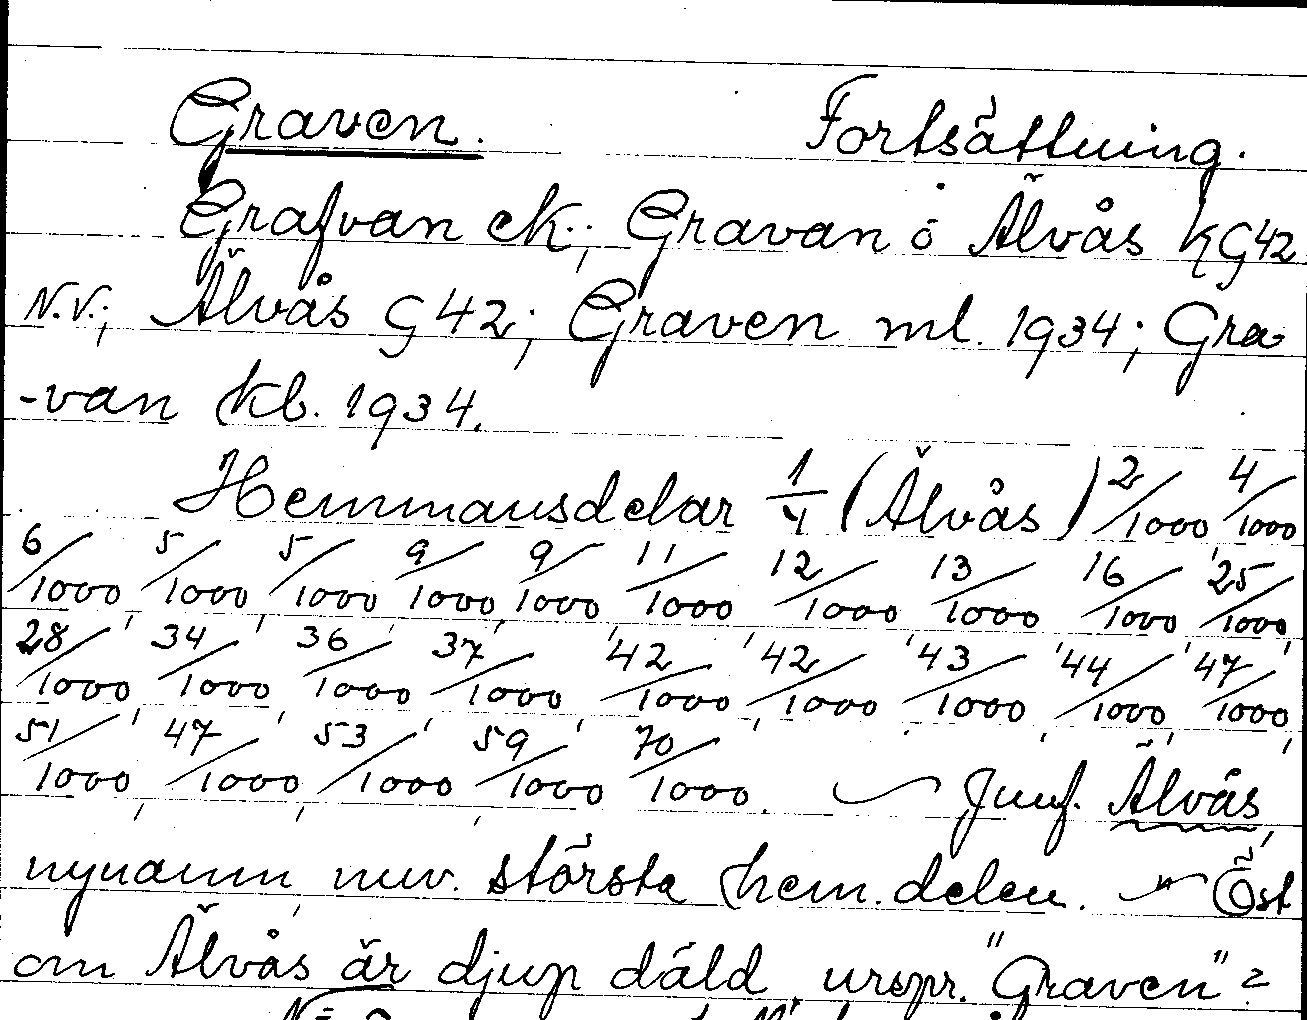 Graven. Fortsättning.
Grafvan ek.; Gravan o Älvås KG42
N.V.; Älvås G42; Graven ml. 1934; Gra-
-van kb. 1934.
Hemmansdelar 1/4 (Älvås) 2/1000 4/1000
6/1000 5/1000 5/1000 9/1000, 9/1000, 11/1000 12/1000 13/1000 16/1000 25/1000
28/1000, 34/1000, 36/1000, 37/1000, 42/1000, 42/1000, 43/1000, 44/1000, 47/1000,
51/1000, 47/1000, 53/1000, 59/1000, 70/1000. Jmf. Älvås,
nynamn, nuv. största hem.delen. Öst
om Älvås är djup däld urspr. "Graven"?